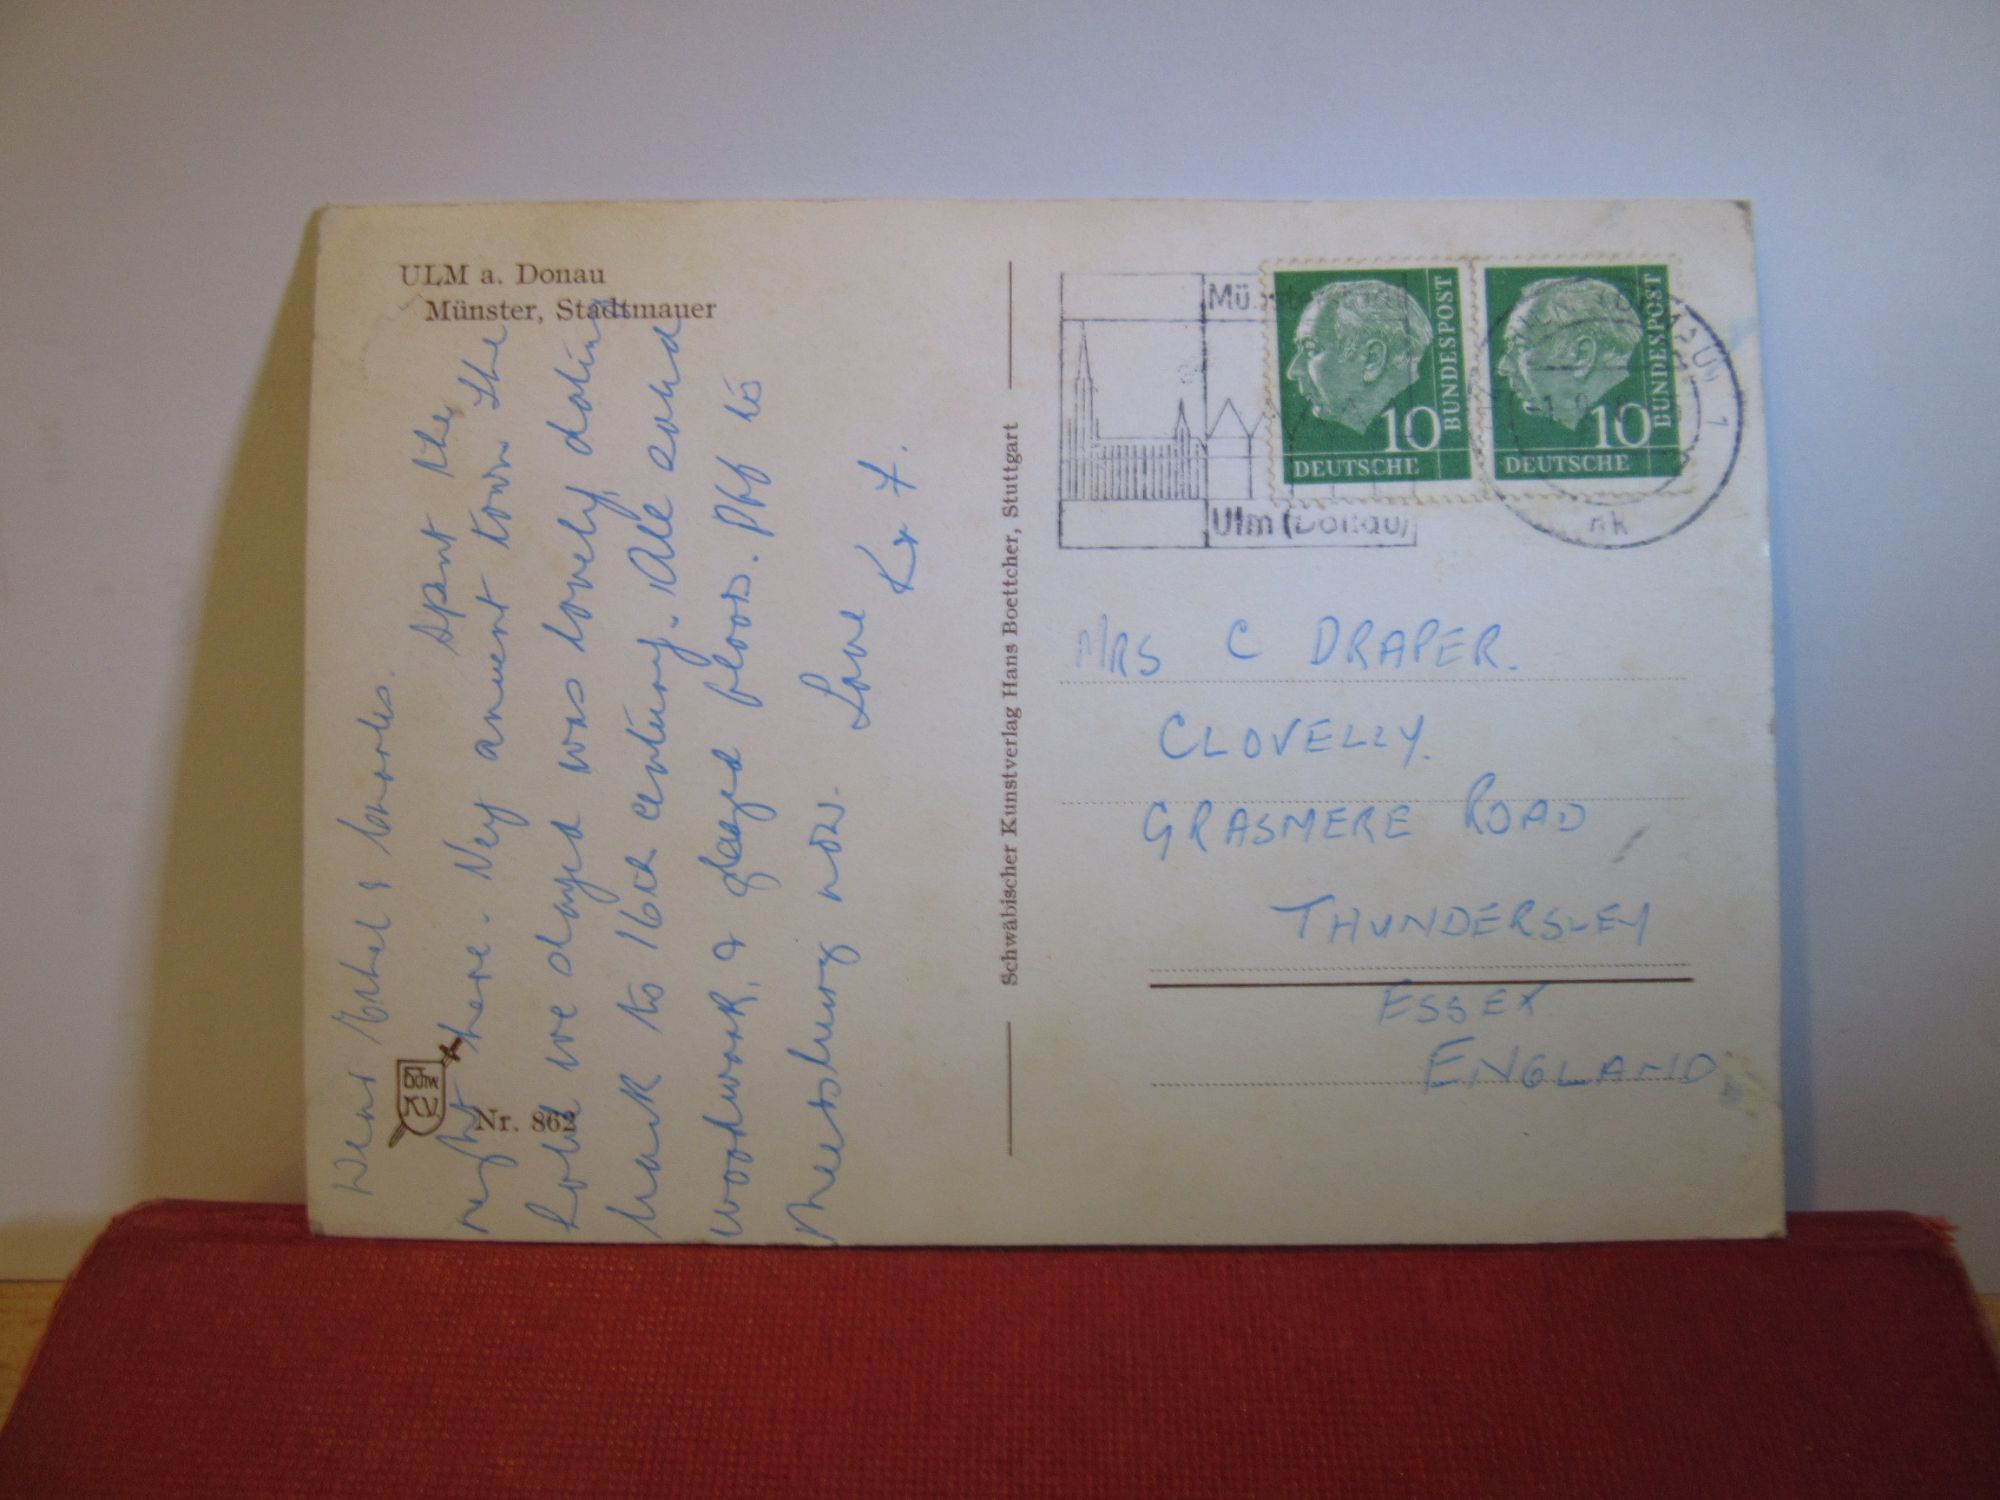 ULM a. Donau
Münster, Stadtmauer
Dear Ethel & Charles.
Spent the
night here. Very ancient town the
hotel we stayed was lovely dating
back to 16th century. Old
woodwork, & glazed floors. Off to
Meersburg now.
Love
Schw
K.V.
Nr. 862
Schwäbischer Kunstverlag Hans Boettcher, Stuttgart
Ulm (Donau)
10
DEUTSCHE
BUNDESPOST
10
DEUTSCHE
BUNDESPOST
1
nk
MRS C DRAPER.
CLOVELLY.
GRASMERE ROAD
THUNDERSLEY
ESSEX
ENGLAND